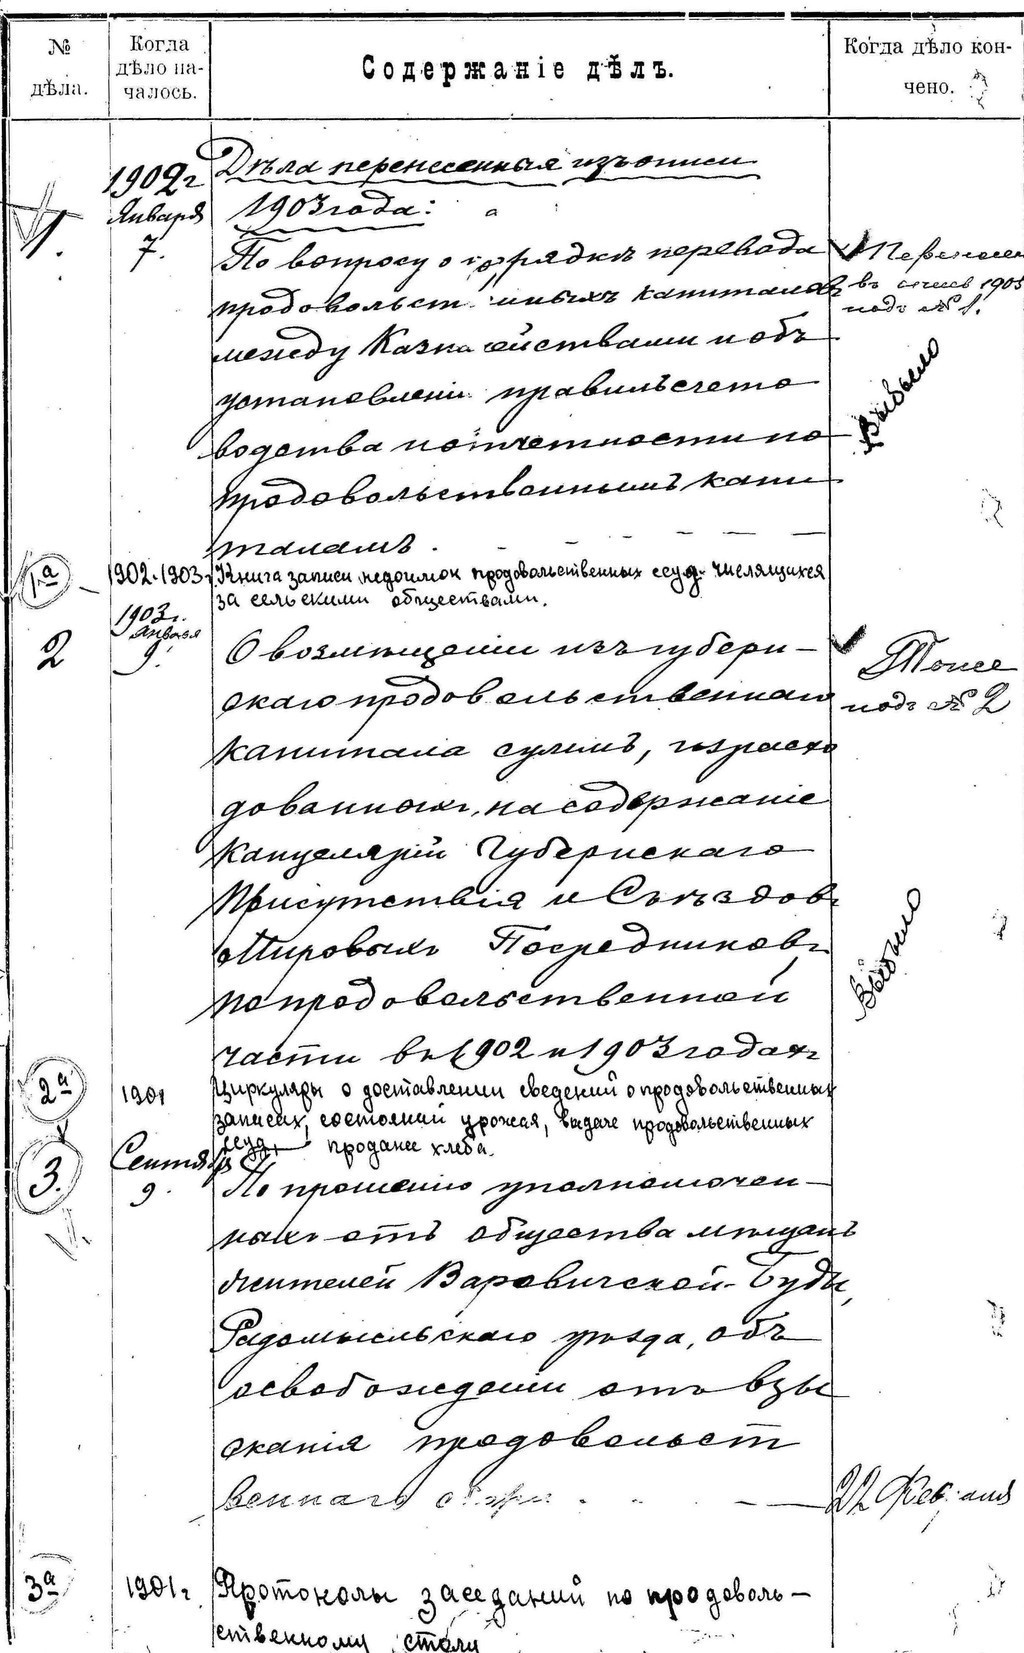 № дѣла.
Когда дѣло на-чалось.
Содержаніе дѣлъ.
Когда дѣло кон-чено.
1902 г
Января
7.
Дѣла перенесенныя изъ описи
1903 года:
1.
По вопросу о порядкѣ перевода
продовольственныхъ капиталовъ
между Казначействами и объ
установленіи правилъ счето
водства и отчетности по
продовольственнымъ капи
таламъ.
Перенесен
въ опись 1905
подъ № 1.
Выбыло
1а
1902-1903 г.
Книга записи недоимок продовольственных ссуд числящихся
за сельскими обществами.
2
1903 г.
Января
9.
О возмѣщеніи изъ губерн-
скаго продовольственнаго
капитала суммъ, израсхо
дованныхъ на содержаніе
Канцелярій Губернскаго
Присутствія и Съѣздовъ
Мировыхъ Посредниковъ
по продовольственной
части въ 1902 и 1903 годахъ
Тоже
подъ № 2
Выбыло
2а
1901
Циркуляры о доставлении сведений о продовольственных
записах, состоянии урожая, выдаче продовольственных
ссуд, продаже хлеба.
3.
Сентябр
9.
По прошенію уполномочен-
ныхъ отъ общества мѣщанъ
жителей Варовичской-Буды,
Радомысльскаго уѣзда, объ
освобожденіи отъ взы
сканія продовольст
веннаго
22 Февраля
3а
1901 г.
Протоколы заседаний по продоволь-
ственному столу